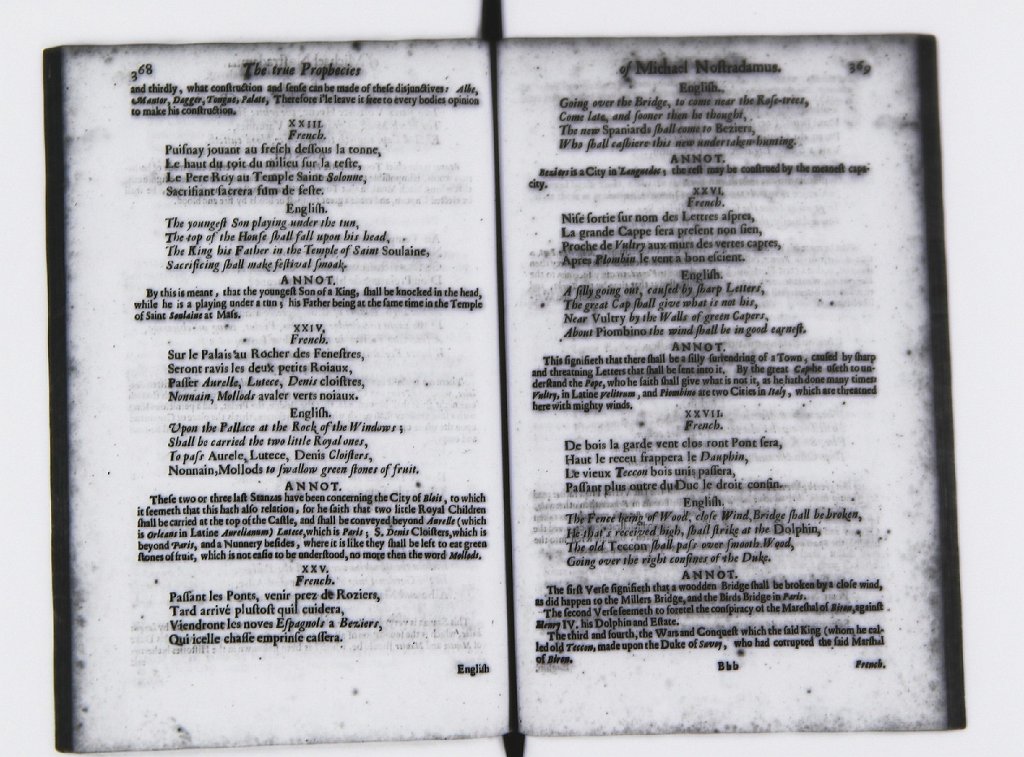 368 The true Prophecies
and thirdly, what construction and sense can be made of these disjunctives: Albe,
Mantor, Dagger, Tongue, Palate, Therefore i'le leave it free to every bodies opinion
to make his construction.
XXIII.
French.
Puisnay jouant au fresch dessous la tonne,
Le haut du toit du milieu sur la teste,
Le Pere Roy au Temple Saint Solonne,
Sacrifiant sacrera fum de feste.
English.
The youngest Son playing under the tun,
The top of the House shall fall upon his head,
The King his Father in the Temple of Saint Soulaine,
Sacrificing shall make festival smoak.
ANNOT.
By this is meant, that the youngest Son of a King, shall be knocked in the head,
while he is a playing under a tun; his Father being at the same time in the Temple
of Saint Soulaine at Mass.
XXIV.
French.
Sur le Palais au Rocher des Fenestres,
Seront ravis les deux petits Roiaux,
Passer Aurelle, Lutece, Denis cloistres,
Nonnain, Mollods avaler verts noiaux.
English.
Upon the Pallace at the Rock of the Windows;
Shall be carried the two little Royal ones,
To pass Aurele, Lutece, Denis Cloisters,
Nonnain, Mollods to swallow green stones of fruit.
ANNOT.
These two or three last Stanzas have been concerning the City of Blois, to which
it seemeth that this hath also relation, for he saith that two little Royal Children
shall be carried at the top of the Castle, and shall be conveyed beyond Aurelle (which
is Orleans in Latine Aurelianum) Lutece, which is Paris; S. Denis Cloisters, which is
beyond Paris, and a Nunnery besides, where it is like they shall be left to eat green
stones of fruit, which is not easie to be understood, no more then the word Mollods.
XXV.
French.
Passant les Ponts, venir prez de Roziers,
Tard arrivé plustost quil cuidera,
Viendront les noves Espagnols a Beziers,
Qui icelle chasse emprinse cassera.
English
of Michael Nostradamus. 369
English.
Going over the Bridge, to come near the Rose-trees,
Come late, and sooner then he thought,
The new Spaniards shall come to Beziers,
Who shall cashiere this new undertaken hunting.
ANNOT.
Beziers is a City in Languedoc; the rest may be construed by the meanest capa-
city.
XXVI.
French.
Nise sortie sur nom des Lettres aspres,
La grande Cappe fera present non sien,
Proche de Vultry aux murs des vertes capres,
Apres Plombin le vent a bon escient.
English.
A silly going out, caused by sharp Letters,
The great Cap shall give what is not his,
Near Vultry by the Walls of green Capers,
About Piombino the wind shall be in good earnest.
ANNOT.
This signifieth that there shall be a silly surrendring of a Town, caused by sharp
and threatning Letters that shall be sent into it. By the great Cap he useth to un-
derstand the Pope, who he saith shall give what is not it, as he hath done many times
Vultry, in Latine velitrum, and Piombino are two Cities in Italy, which are threatned
here with mighty winds.
XXVII.
French.
De bois la garde vent clos ront Pont sera,
Haut le receu frappera le Dauphin,
Le vieux Teccon bois unis passera,
Passant plus outre du Duc le droit confin.
English.
The Fence being of Wood, close Wind, Bridge shall be broken,
He that's received high, shall strike at the Dolphin,
The old Teccon shall pass over smooth Wood,
Going over the right confines of the Duke.
ANNOT.
The first Verse signifieth that a woodden Bridge shall be broken by a close wind,
as did happen to the Millers Bridge, and the Birds Bridge in Paris.
The second Verse seemeth to foretel the conspiracy of the Mareshal of Biron, against
Henry IV. his Dolphin and Estate.
The third and fourth, the Wars and Conquest which the said King (whom he cal-
led old Teccon, made upon the Duke of Savoy, who had corrupted the said Marshal
of Biron.
Bbb French.